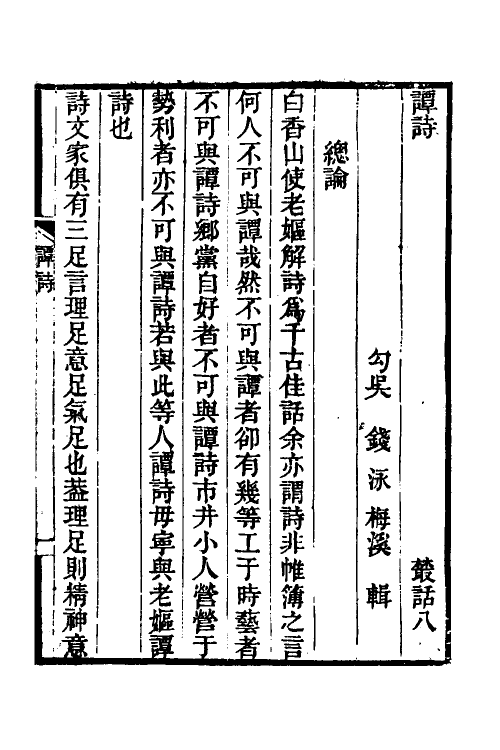 譚詩　叢話八
勾吳　錢　泳　梅溪　輯
總論
白香山使老嫗解詩爲千古佳話余亦謂詩非帷簿之言
何人不可與譚哉然不可與譚者卻有幾等工于時藝者
不可與譚詩鄉黨自好者不可與譚詩市井小人營營于
勢利者亦不可與譚詩若與此等人譚詩毋寧與老嫗譚
詩也
詩文家俱有三足言理足意足氣足也葢理足則精神意
譚詩